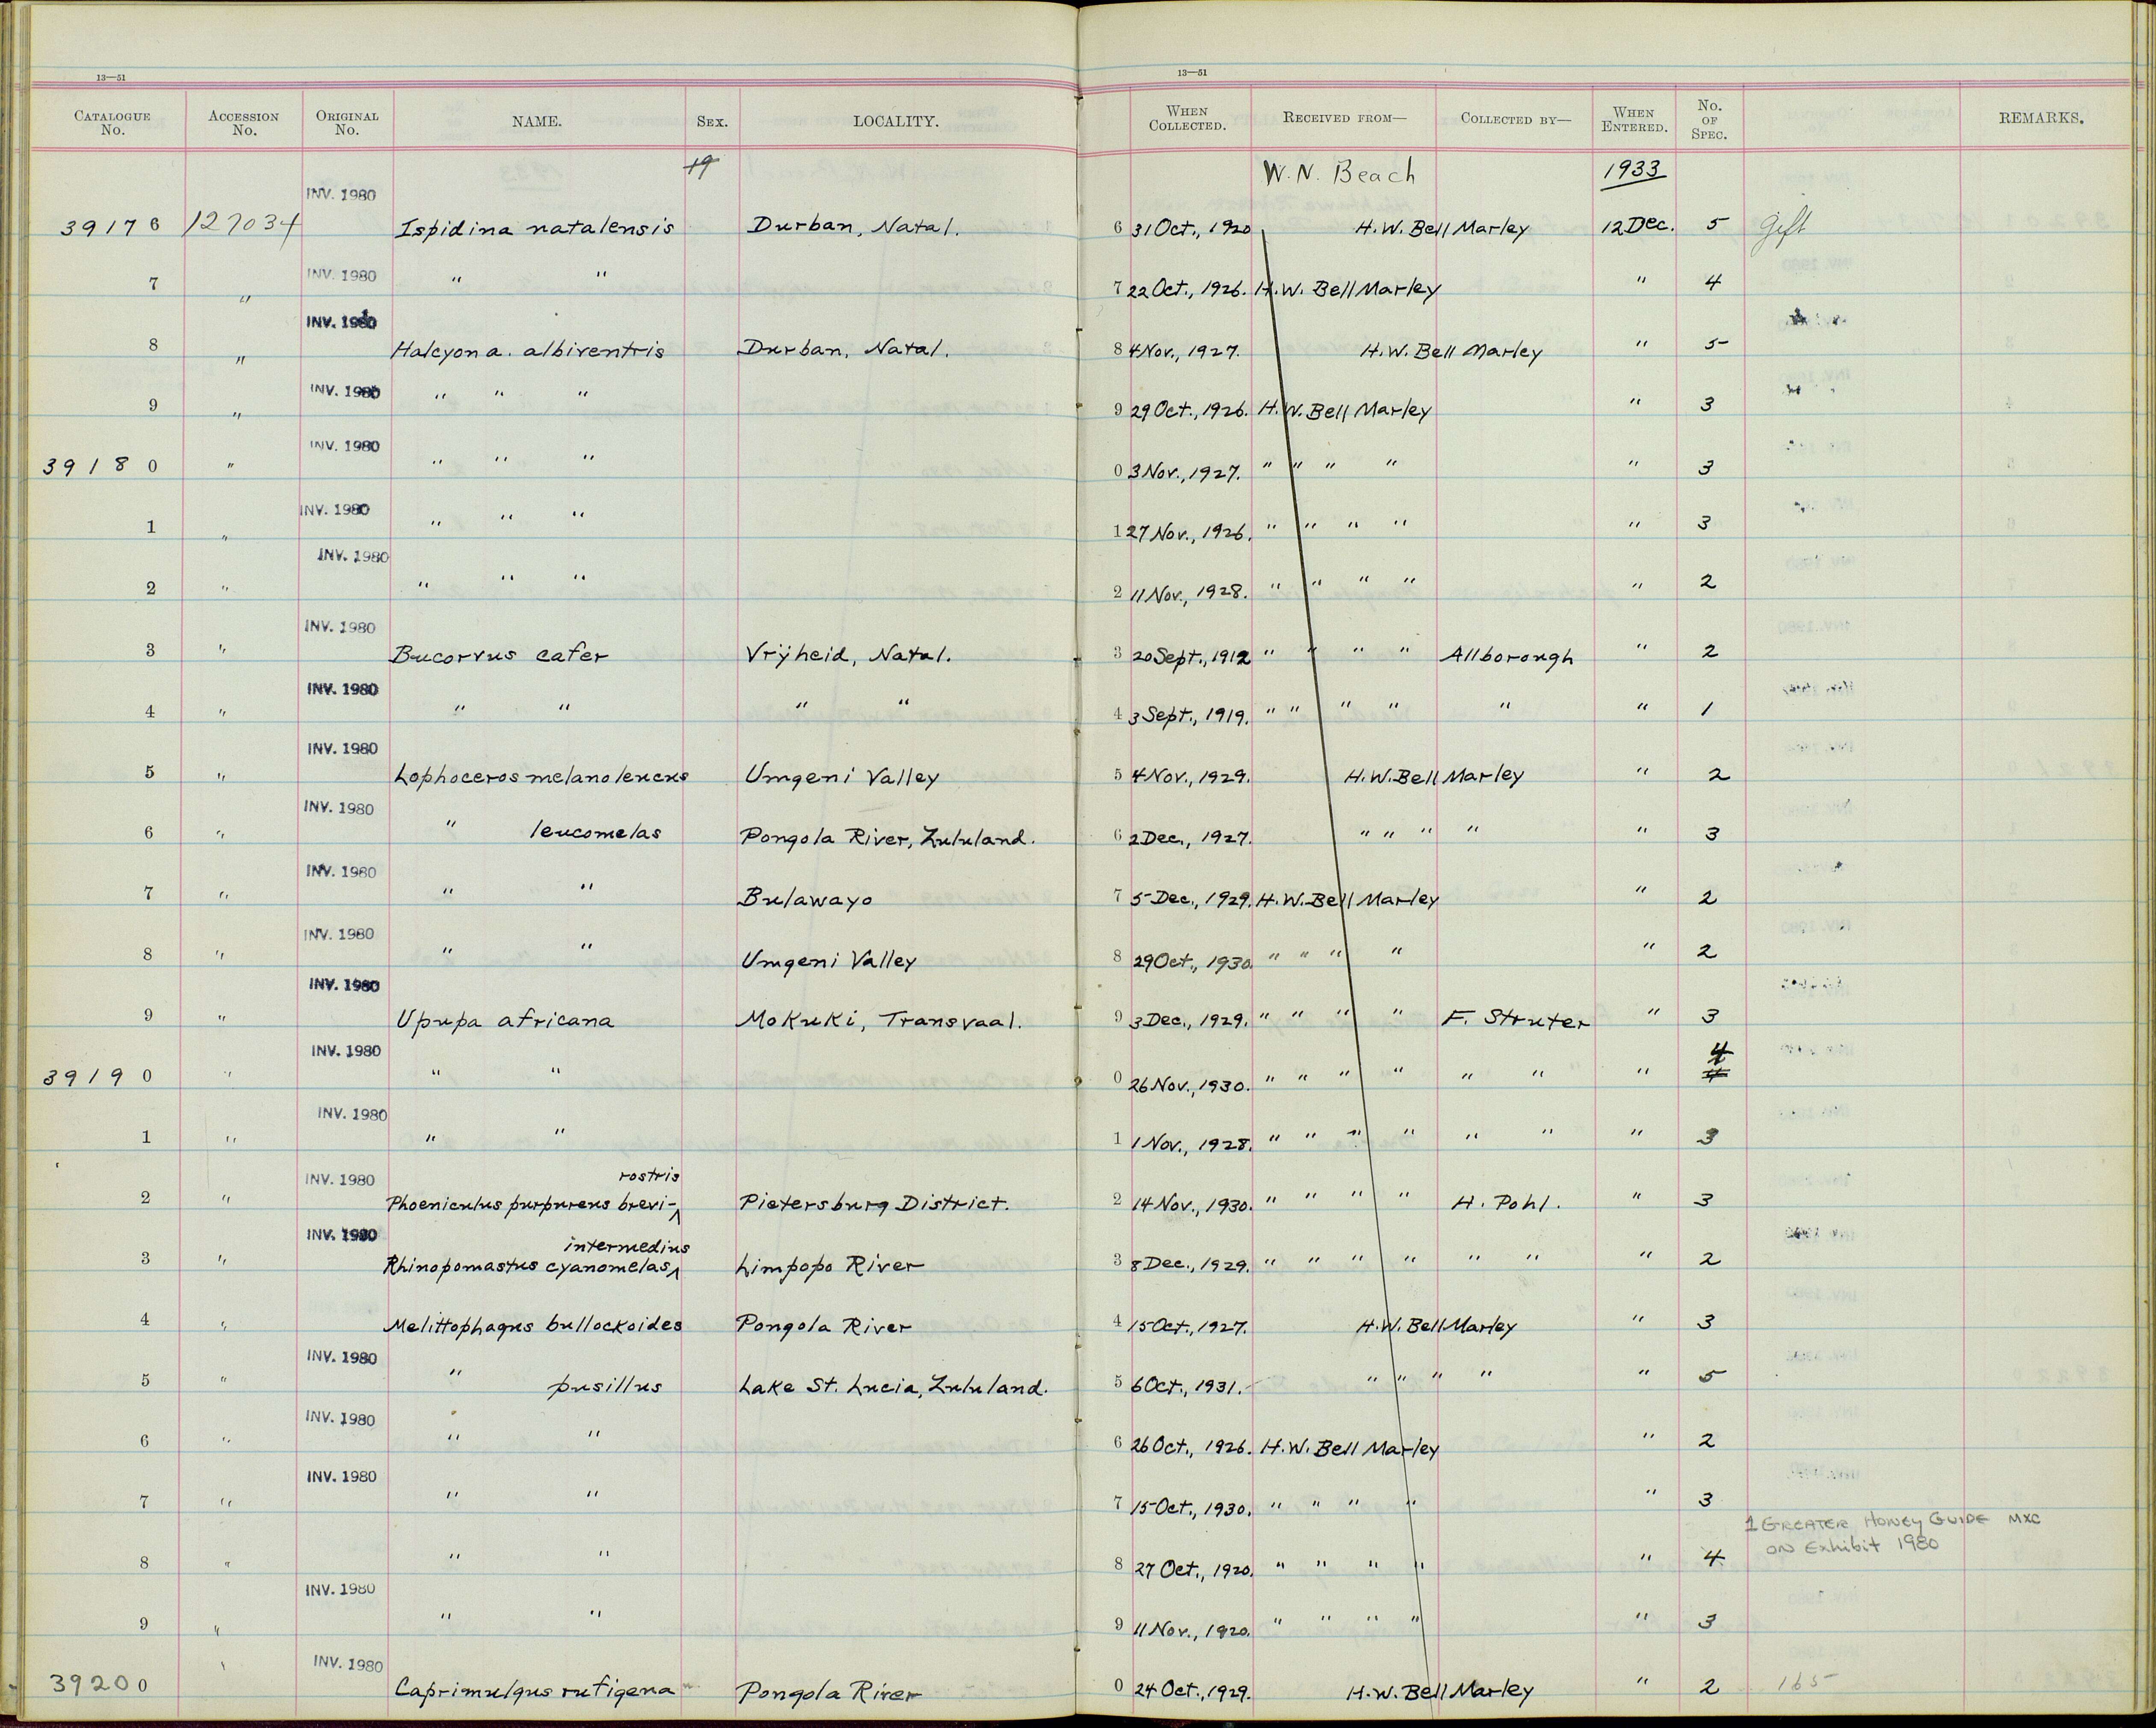 13—51 13—51
CATALOGUE No. ACCESSION No. ORIGINAL No. NAME. SEX. LOCALITY. WHEN COLLECTED. RECEIVED FROM— COLLECTED BY— WHEN ENTERED. No. OF SPEC. REMARKS.
19 W. N. Beach 1933
INV. 1980
39176 127034 Ispidina natalensis Durban, Natal. 6 31 Oct., 1920 H.W. Bell Marley 12 Dec. 5 gift
INV. 1980
7 " " " 7 22 Oct., 1926. H.W. Bell Marley " 4
INV. 1980
8 " Halcyon a. albiventris Durban, Natal. 8 4 Nov., 1927. H.W. Bell Marley " 5
INV. 1980
9 " " " " 9 29 Oct., 1926. H.W. Bell Marley " 3
INV. 1980
39180 " " " " 0 3 Nov., 1927. " " " " " 3
INV. 1980
1 " " " " 1 27 Nov., 1926. " " " " " 3
INV. 1980
2 " " " " 2 11 Nov., 1928. " " " " " 2
INV. 1980
3 " Bucorvus cafer Vrijheid, Natal. 3 20 Sept., 1912 " " " " Allborough " 2
INV. 1980
4 " " " " " 4 3 Sept., 1919. " " " " " " 1
INV. 1980
5 " Lophoceros melanoleucus Umgeni Valley 5 4 Nov., 1929. H.W. Bell Marley " 2
INV. 1980
6 " " leucomelas Pongola River, Zululand. 6 2 Dec., 1927. " " " " " 3
INV. 1980
7 " " " Bulawayo 7 5 Dec., 1929. H.W. Bell Marley " 2
INV. 1980
8 " " " Umgeni Valley 8 29 Oct., 1930. " " " " " 2
INV. 1980
9 " Upupa africana Mokuki, Transvaal. 9 3 Dec., 1929. " " " " F. Struter " 3
INV. 1980
39190 " " " 0 26 Nov., 1930. " " " " " " " 4
INV. 1980
1 " " " 1 1 Nov., 1928. " " " " " " " 3
INV. 1980 rostris
2 " Phoeniculus purpureus brevi- Pietersburg District. 2 14 Nov., 1930. " " " " H. Pohl. " 3
INV. 1980 intermedius
3 " Rhinopomastus cyanomelas Limpopo River 3 8 Dec., 1929. " " " " " " " 2
4 " Melittophagus bullockoides Pongola River 4 15 Oct., 1927. H.W. Bell Marley " 3
INV. 1980
5 " " pusillus Lake St. Lucia, Zululand. 5 6 Oct., 1931. " " " " " 5
INV. 1980
6 " " " 6 26 Oct., 1926. H.W. Bell Marley " 2
INV. 1980
7 " " " 7 15 Oct., 1930. " " " " " 3
1 GREATER HONEY GUIDE MXC
ON Exhibit 1980
8 " " " 8 27 Oct., 1920. " " " " " 4
INV. 1980
9 " " " 9 11 Nov., 1920. " " " " " 3
INV. 1980
39200 " Caprimulgus rufigena Pongola River 0 24 Oct., 1929. H.W. Bell Marley " 2 165